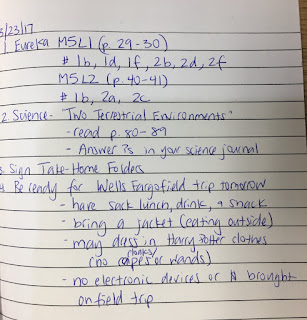 5/23/17
1 Eureka M5L1 (p. 29-30)
# 1b, 1d, 1f, 2b, 2d, 2f
M5L2 (p. 40-41)
# 1b, 2a, 2c
2. Science - "Two Terrestrial Environments"
- read p. 80-89
- Answer 3s in your science journal
3. Sign Take-Home Folders
4. Be ready for Wells Fargo field trip tomorrow
- have sack lunch, drink, + snack
- bring a jacket (eating outside)
- may dress in Harry Potter clothes
(no cloaks/capes or wands)
- no electronic devices or $ brought
on field trip